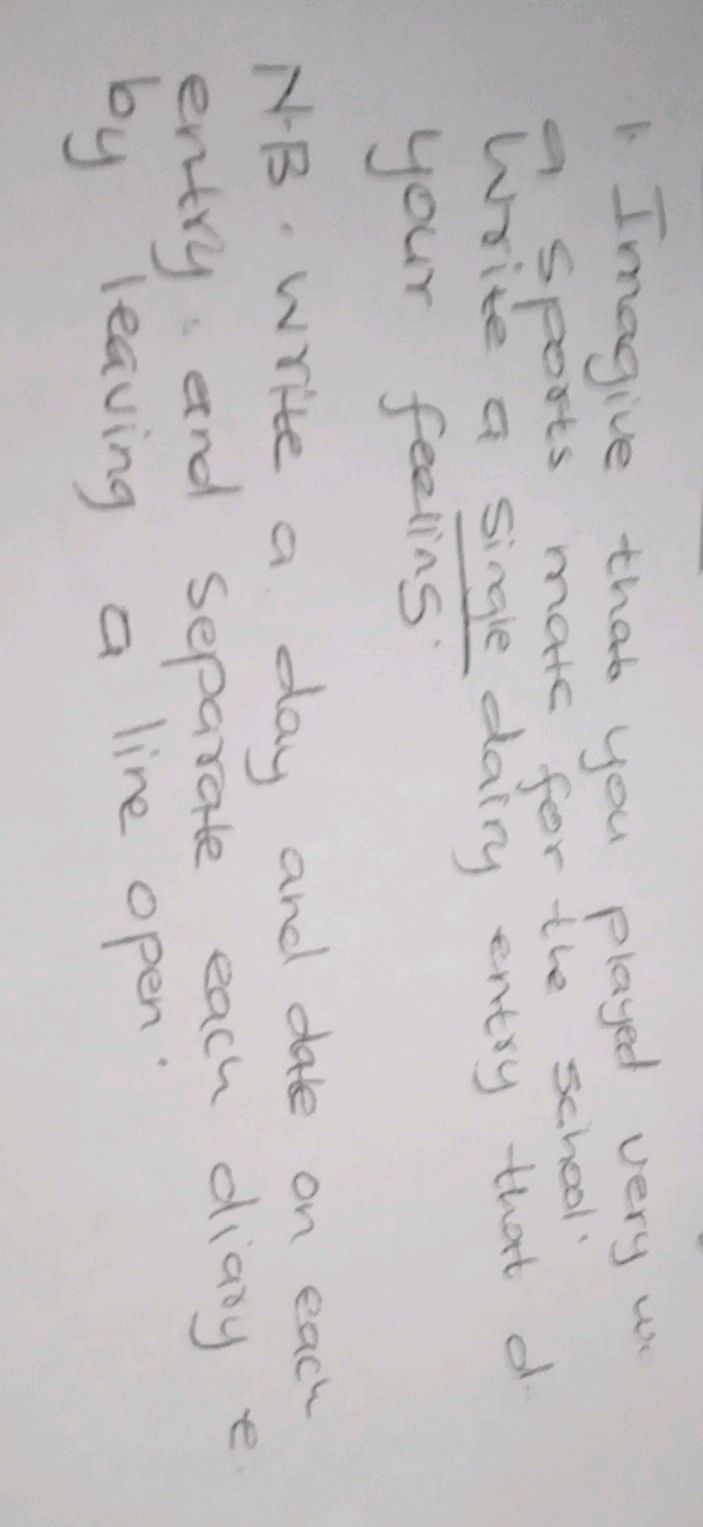 1. Imagine that you played very
a sports mate for the school.
Write a single dairy entry that
your feelins.
N.B. write a day and date on each
entry. and separate each diary
by leaving a line open.